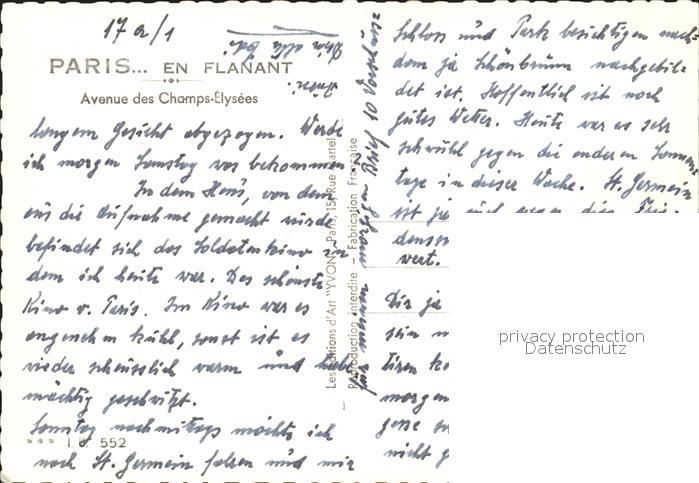 17a/1
PARIS... EN FLANANT
Avenue des Champs-Elysées
langem Gesicht abgezogen. Werde
ich morgen Samstag was bekommen
In dem Haus, von dem
aus die Aufnahme gemacht wurde
befindet sich das Soldatenkino in
dem ich heute war. Das schönste
Kino v. Paris. Im Kino war es
angenehm kühl, sonst ist es
wieder scheusslich warm und habe
mächtig geschwitzt.
Samstag nachmittags möchte ich
nach St. Germain fahren und mir
I. P. 552
Les Editions d'Art "YVON" Paris, 15, Rue Martel
Reproduction interdite - Fabrication Française
für meinen Brief 10
Schloss und Park besichtigen nach-
dem ja Schönbrunn nachgebil-
det ist. Hoffentlich ist noch
gutes Wetter. Heute war es sehr
schwühl gegen die anderen Sonn-
tage in dieser Woche. St. Germain
ist
wert.
Dir ja
sein
morgen
nicht
privacy protection
Datenschutz